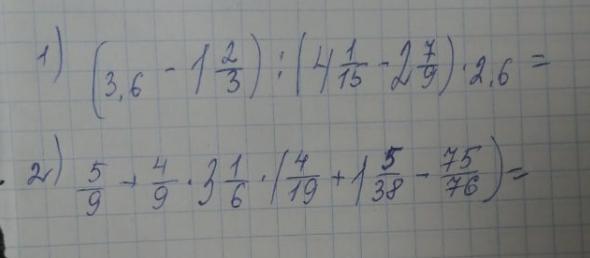 1) (3,6 - 1 2/3) : (4 1/15 - 2 7/9) · 2,6 =
2) 5/9 + 4/9 · 3 1/6 · (4/19 + 1 5/38 - 75/76) =